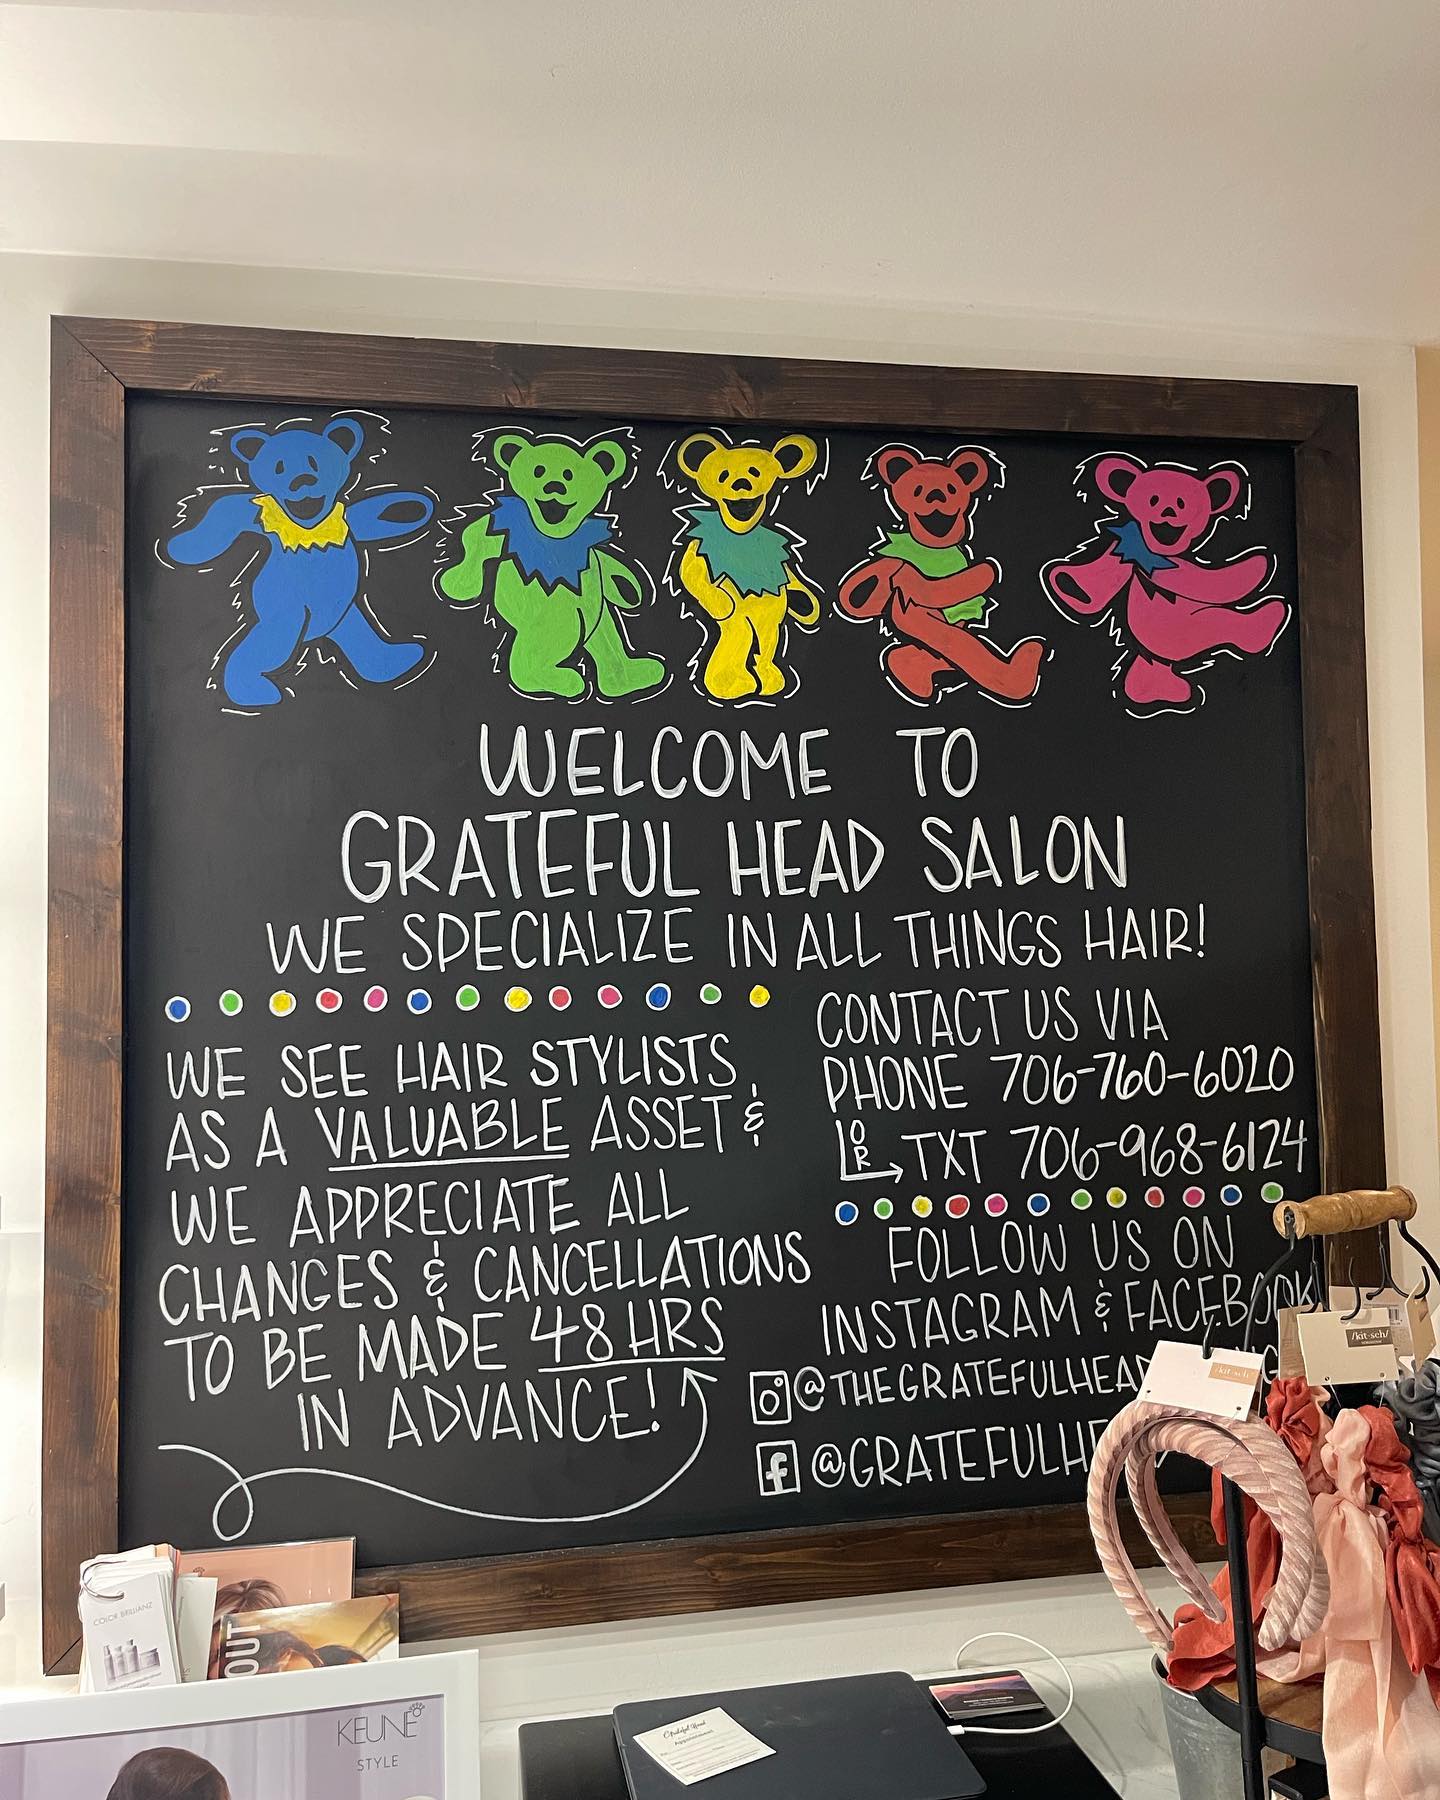 WELCOME TO
GRATEFUL HEAD SALON
WE SPECIALIZE IN ALL THINGS HAIR!
WE SEE HAIR STYLISTS
AS A VALUABLE ASSET &
WE APPRECIATE ALL
CHANGES & CANCELLATIONS
TO BE MADE 48 HRS
IN ADVANCE!
CONTACT US VIA
PHONE 706-760-6020
OR TXT 706-968-6124
FOLLOW US ON
INSTAGRAM & FACEBOOK
@THEGRATEFULHEAD
@GRATEFULHE
/kit-sch/
/kit-sch/
COLOR BRILLIANZ
OUT
KEUNE
STYLE
Grateful Head
Appointment